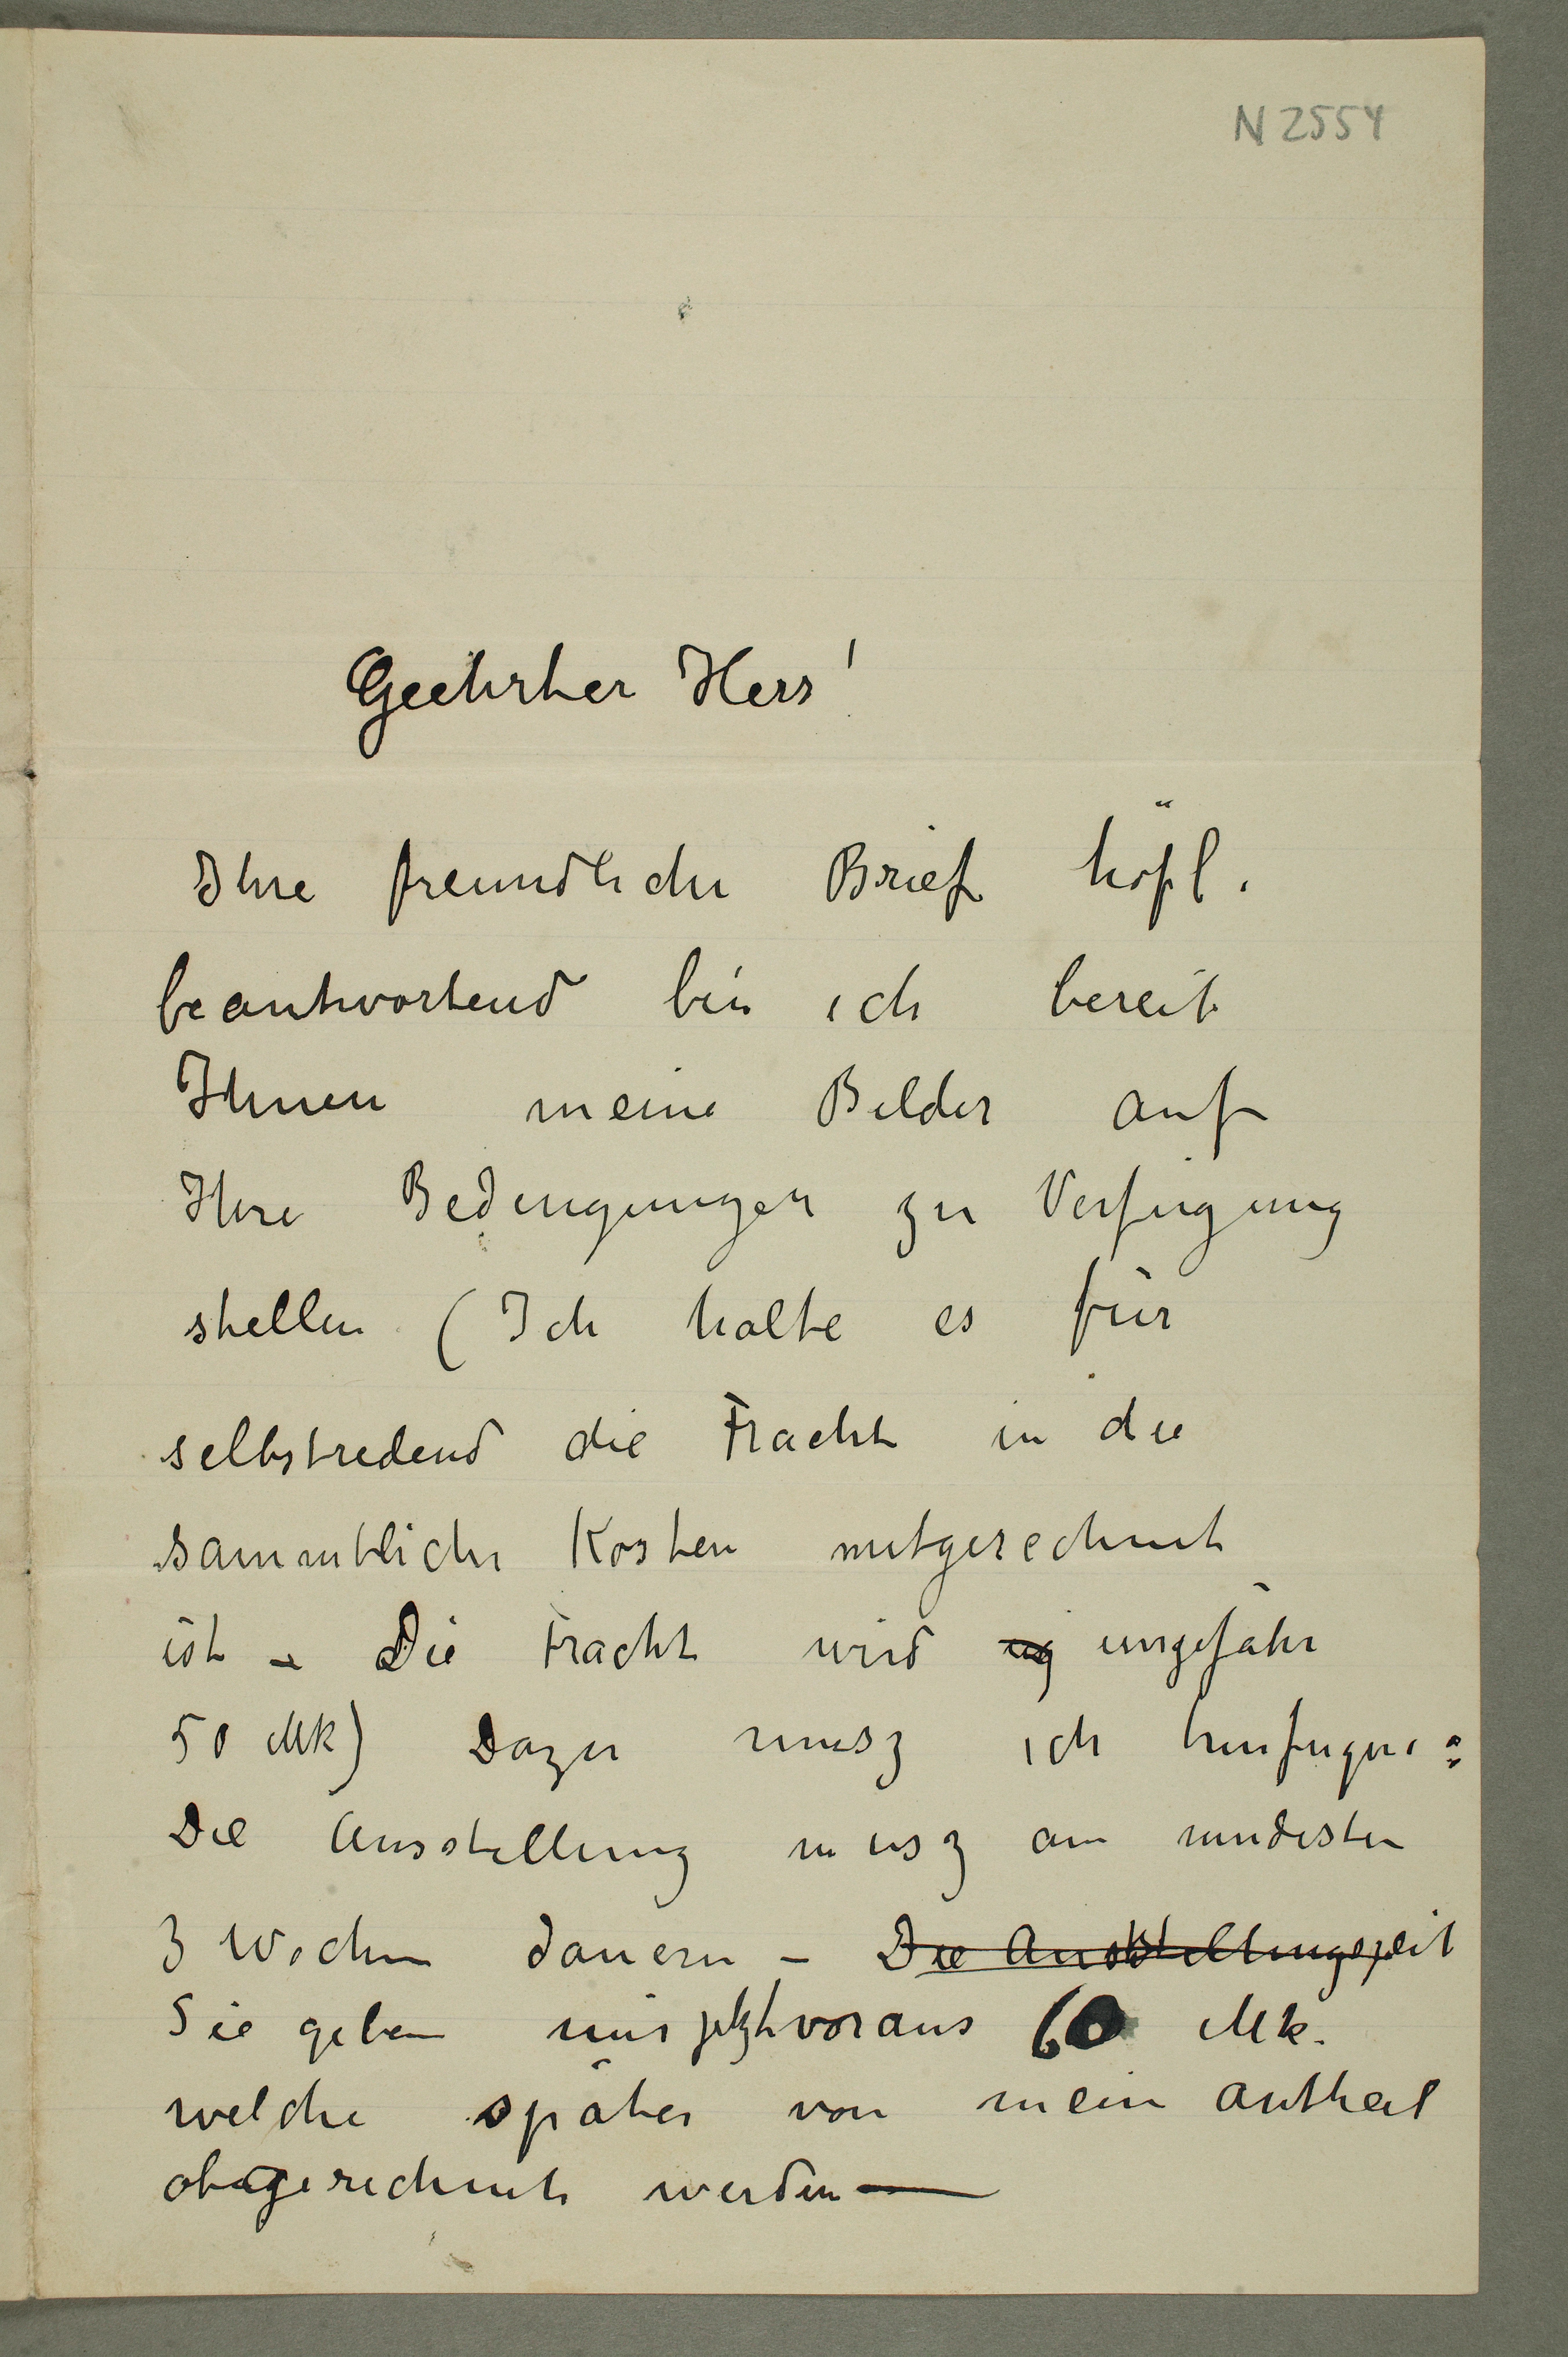 N 2554
Geehrter Herr!
Ihre freundliche Brief höfl.
beantwortend bin ich bereit
Ihnen meine Bilder auf
Ihre Bedingungen zu Verfügung
stellen (Ich halte es für
selbstredend die Fracht in die
sammtliche Kosten mitgerechnet
ist – Die Fracht wird ug ungefähr
50 Mk) Dazu musz ich hinfugen:
Die Ausstellung musz am mindesten
3 Wochen dauern – Die Ausstellungszeit
Sie geben mir jetzt voraus 60 Mk.
welche später von mein Antheil
abgerechnet werden —